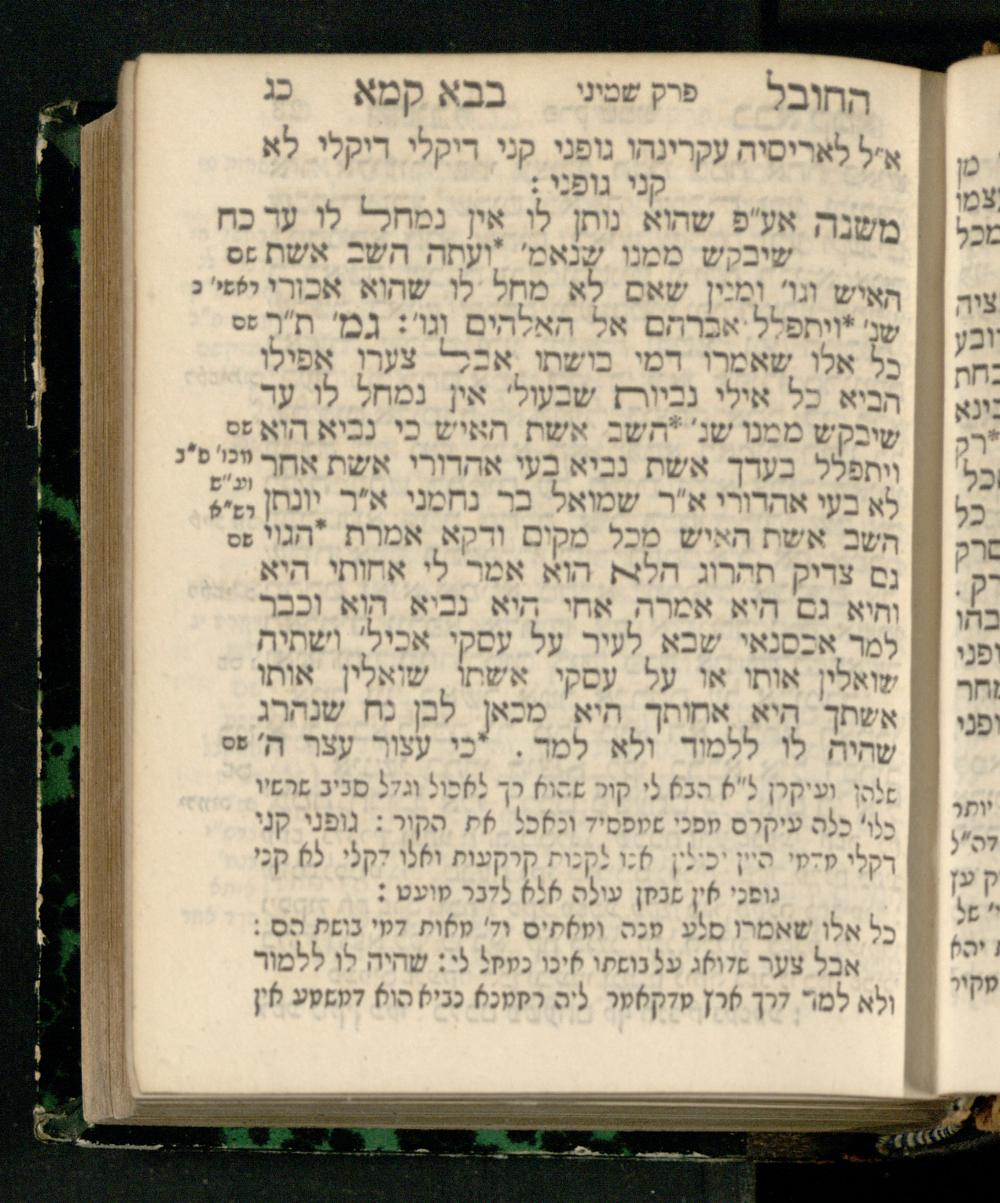 החובל פרק שמיני בבא קמא כג
א״ל לאריסיה עקרינהו גופני קני דיקלי דיקלי לא
קני גופני :
משנה אע״פ שהוא נותן לו אין נמחל לו עד כח
שיבקש ממנו שנאמ׳ *ועתה השב אשת שם
האיש וגו׳ ומנין שאם לא מחל לו שהוא אכזרי
שנ׳ *ויתפלל אברהם אל האלהים וגו׳ : גמ׳ ת״ר שם
כל אלו שאמרו דמי בושתו אבל צערו אפילו
הביא כל אילי נביות שבעול׳ אין נמחל לו עד
שיבקש ממנו שנ׳ *השב אשת האיש כי נביא הוא שם
ויתפלל בעדך אשת נביא בעי אהדורי אשת אחר
לא בעי אהדורי א״ר שמואל בר נחמני א״ר יונתן
השב אשת האיש מכל מקום ודקא אמרת *הגוי שם
גם צדיק תהרוג הלא הוא אמר לי אחותי היא
והיא גם היא אמרה אחי היא נביא הוא וכבר
למד אכסנאי שבא לעיר על עסקי אכיל׳ ושתיה
שואלין אותו או על עסקי אשתו שואלין אותו
אשתך היא אחותך היא מכאן לבן נח שנהרג
שהיה לו ללמוד ולא למד . *כי עצור עצר ה׳ שם
שלהן ועיקרן ל״א הבא לי קור שהוא רך לאכול וגדל סביב שרשיו
כלו׳ כלה עיקרם מפני שמפסיד ונאכל את הקור : גופני קני
דקלי מדמי היין יכילין אנו לקנות קרקעות ואלו דקלי לא קני
גופני אין שבהן עולה אלא לדבר מועט :
כל אלו שאמרו סלע מנה ומאתים וד׳ מאות דמי בושת הם :
אבל צער שדואג על בושתו אינו נמחל לו : שהיה לו ללמוד
ולא למד דרך ארץ מדקאמר ליה רחמנא נביא הוא דמשמע אין